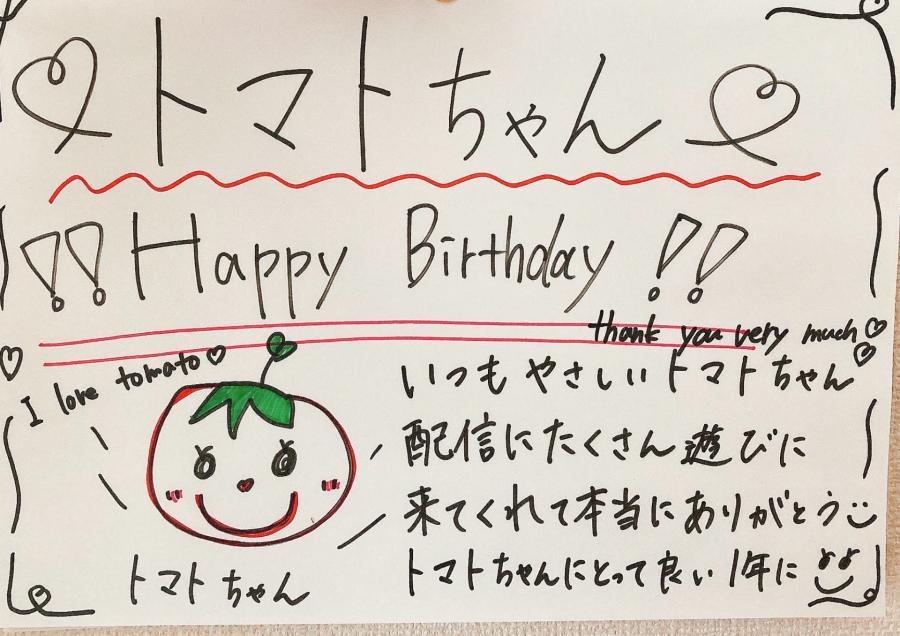 トマトちゃん
!! Happy Birthday !!
thank you very much♡
I love tomato♡
いつもやさしいトマトちゃん♡
配信にたくさん遊びに
来てくれて本当にありがとう
トマトちゃんにとって良い1年に
トマトちゃん